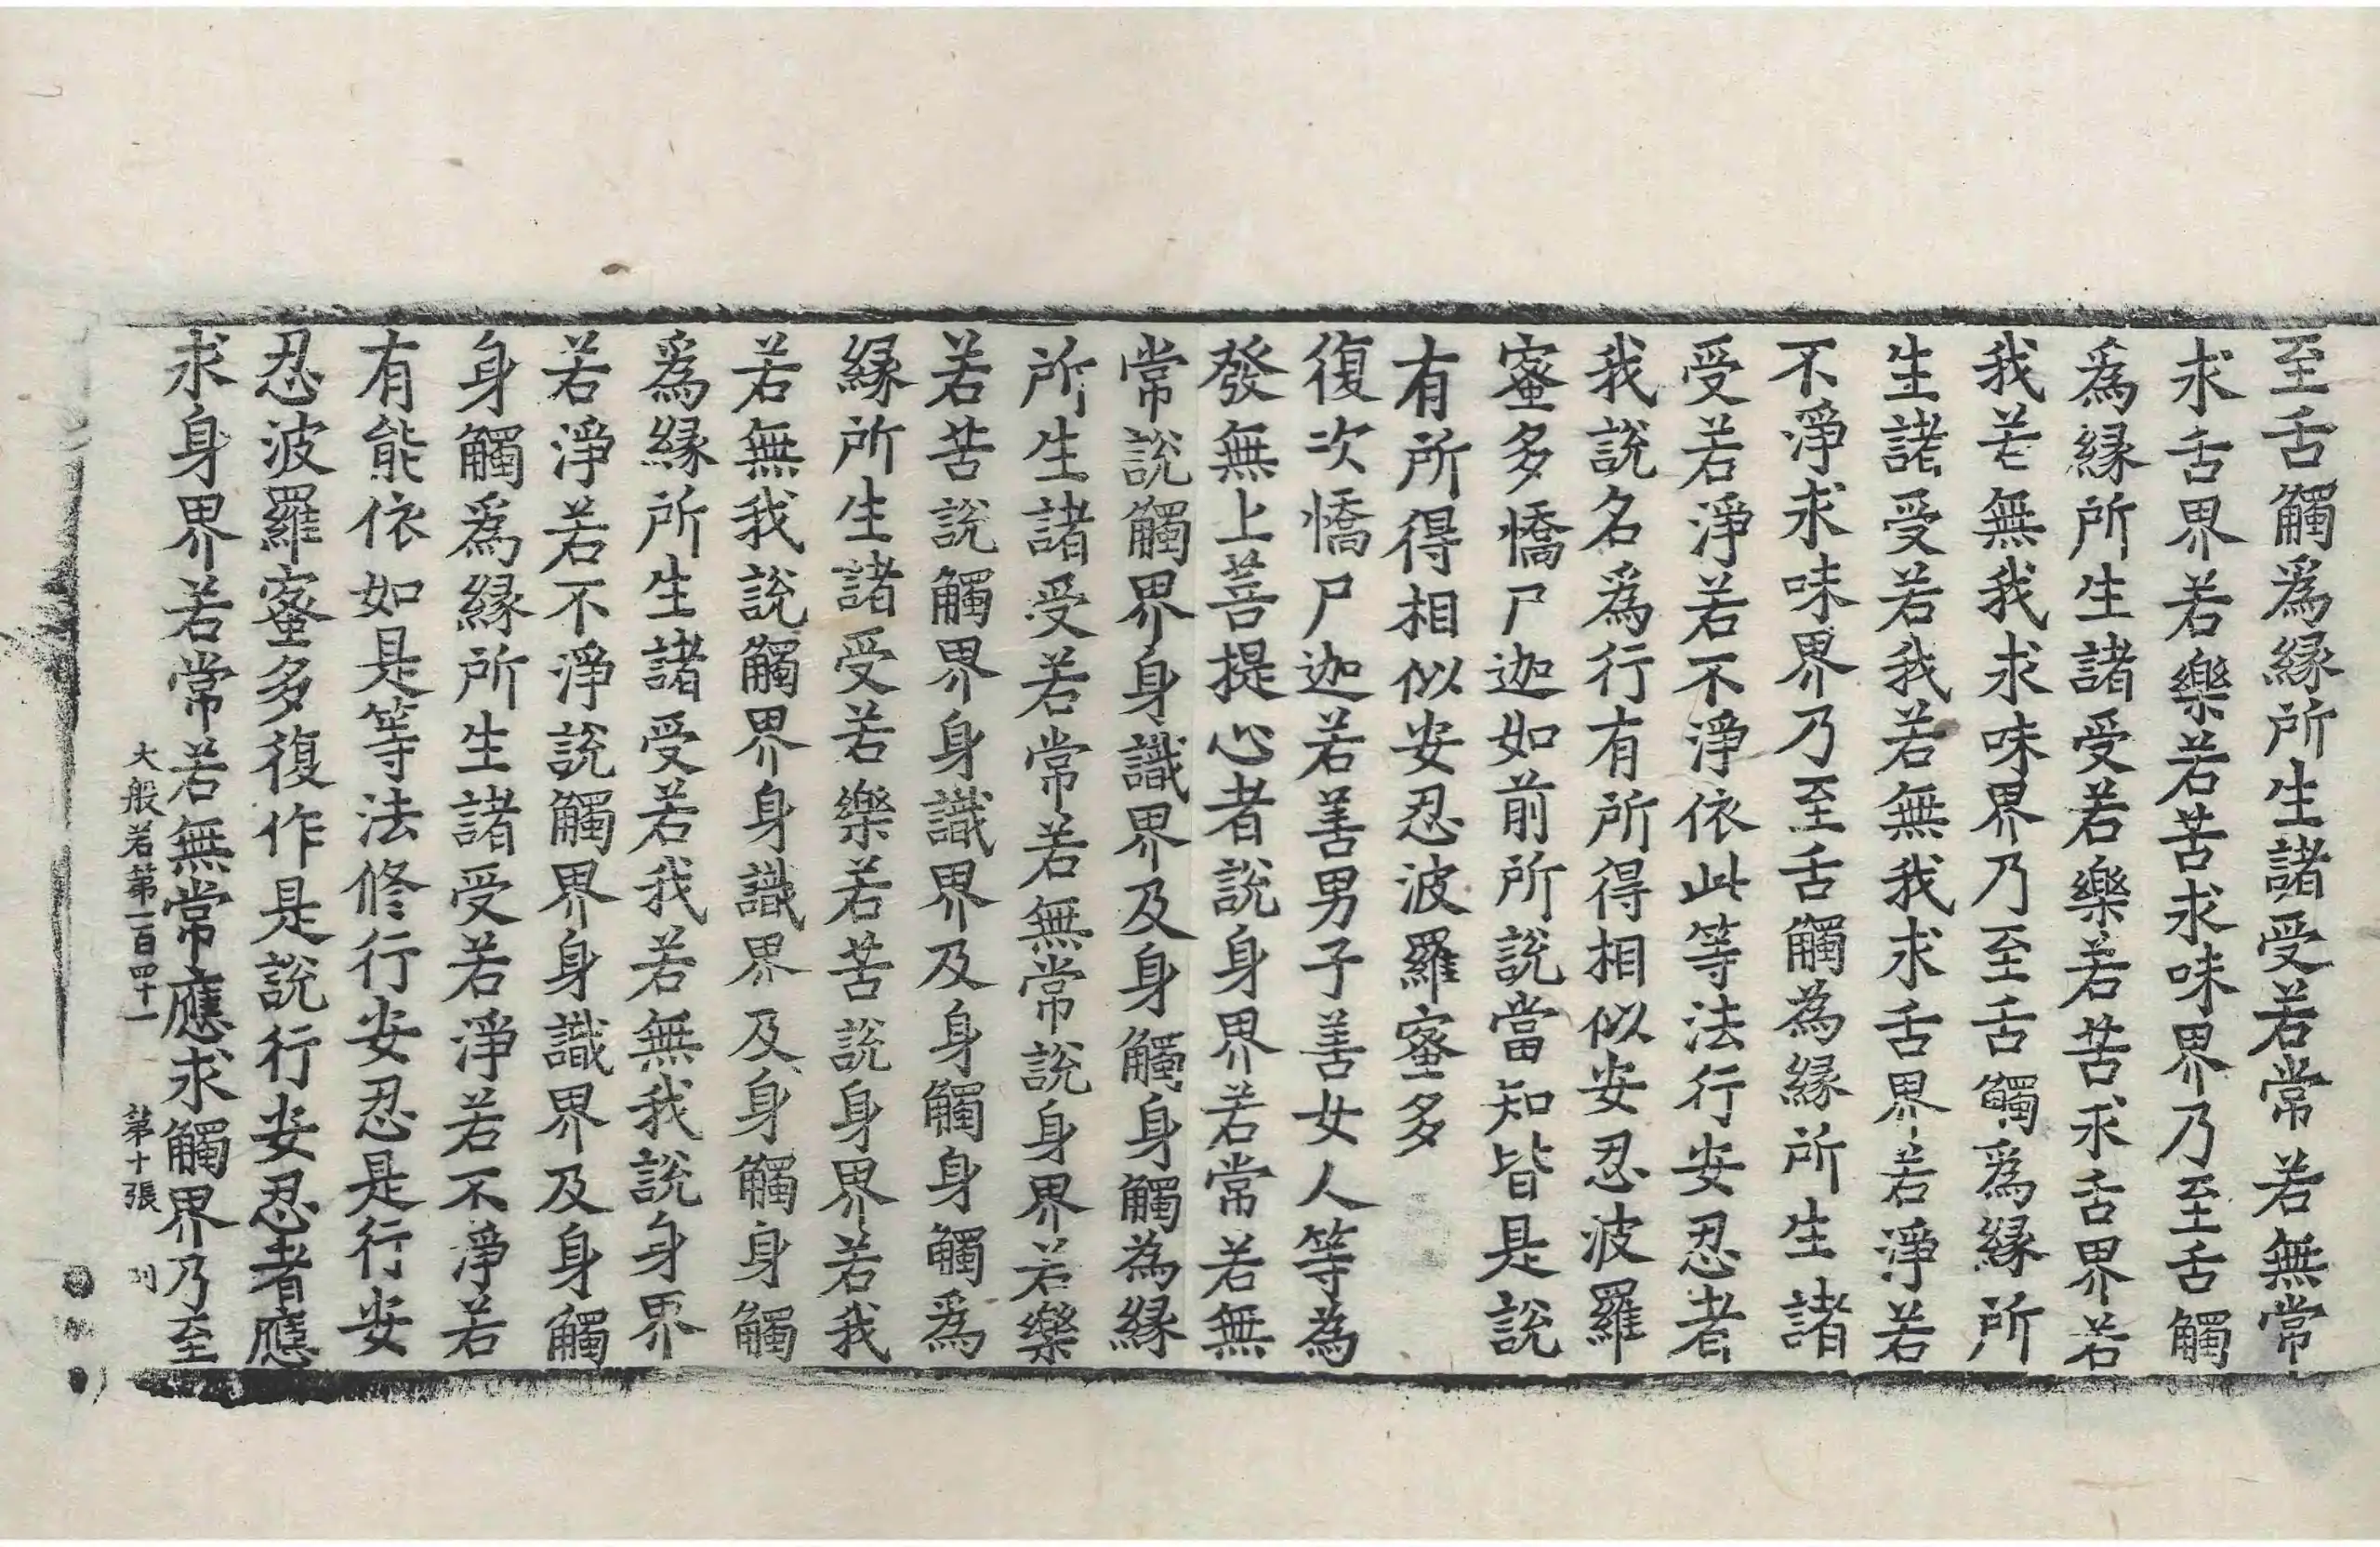 至舌觸爲緣所生諸受若常若無常
求舌界若樂若苦求味界乃至舌觸
爲緣所生諸受若樂若苦求舌界若
我若無我求味界乃至舌觸爲緣所
生諸受若我若無我求舌界若淨若
不淨求味界乃至舌觸為緣所生諸
受若淨若不淨依此等法行安忍者
我說名爲行有所得相似安忍波羅
蜜多憍尸迦如前所說當知皆是說
有所得相似安忍波羅蜜多
復次憍尸迦若善男子善女人等為
發無上菩提心者說身界若常若無
常說觸界身識界及身觸身觸為緣
所生諸受若常若無常說身界若樂
若苦說觸界身識界及身觸身觸爲
緣所生諸受若樂若苦說身界若我
若無我說觸界身識界及身觸身觸
爲緣所生諸受若我若無我說身界
若淨若不淨說觸界身識界及身觸
身觸爲緣所生諸受若淨若不淨若
有能依如是等法修行安忍是行安
忍波羅蜜多復作是說行安忍者應
求身界若常若無常應求觸界乃至
大般若第一百四十一 第十張